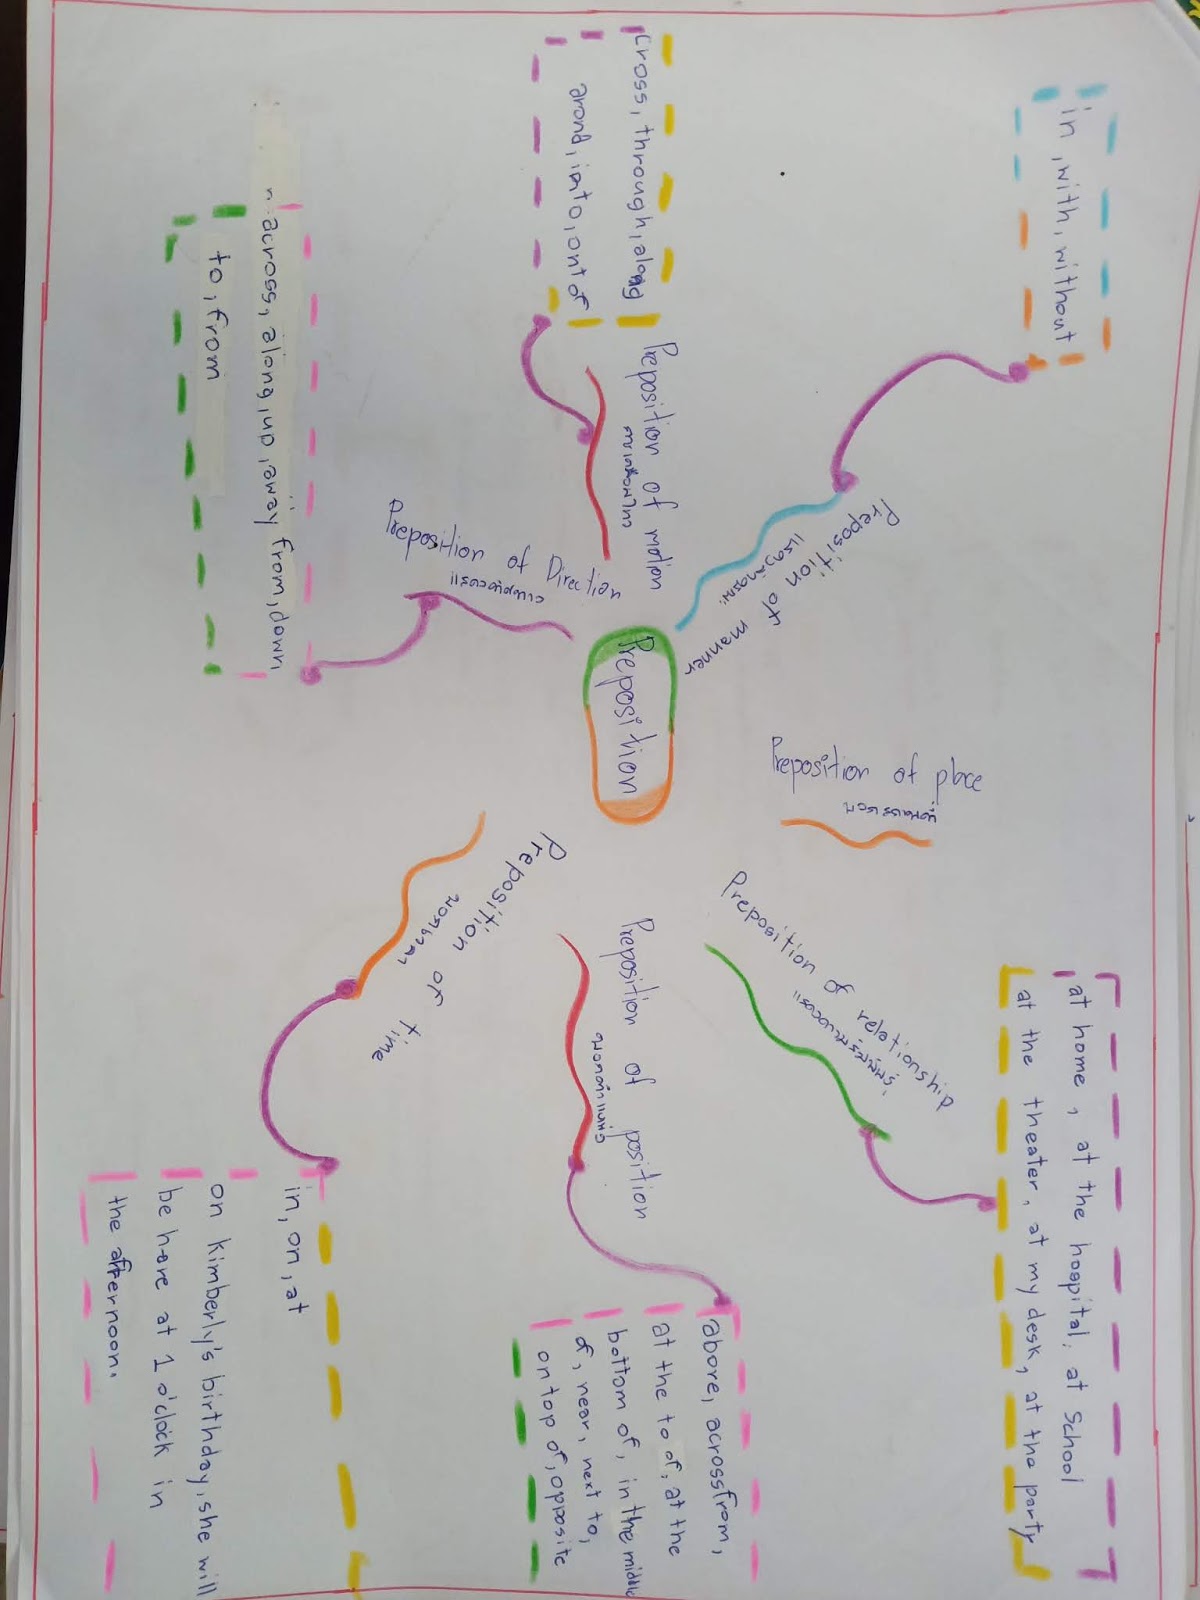 Preposition
Preposition of manner
แสดงลักษณะ
in, with, without
Preposition of place
บอกสถานที่
Preposition of relationship
แสดงความสัมพันธ์
at home, at the hospital, at School
at the theater, at my desk, at the party
Preposition of position
บอกตำแหน่ง
above, across from,
at the to of, at the
bottom of, in the middle
of, near, next to,
on top of, opposite
Preposition of time
บอกเวลา
in, on, at
on kimberly's birthday, she will
be here at 1 o'clock in
the afternoon.
Preposition of Direction
across, along, up, away from, down,
to, from
Preposition of motion
การเคลื่อนไหว
Cross, through, along
arond, into, ont of